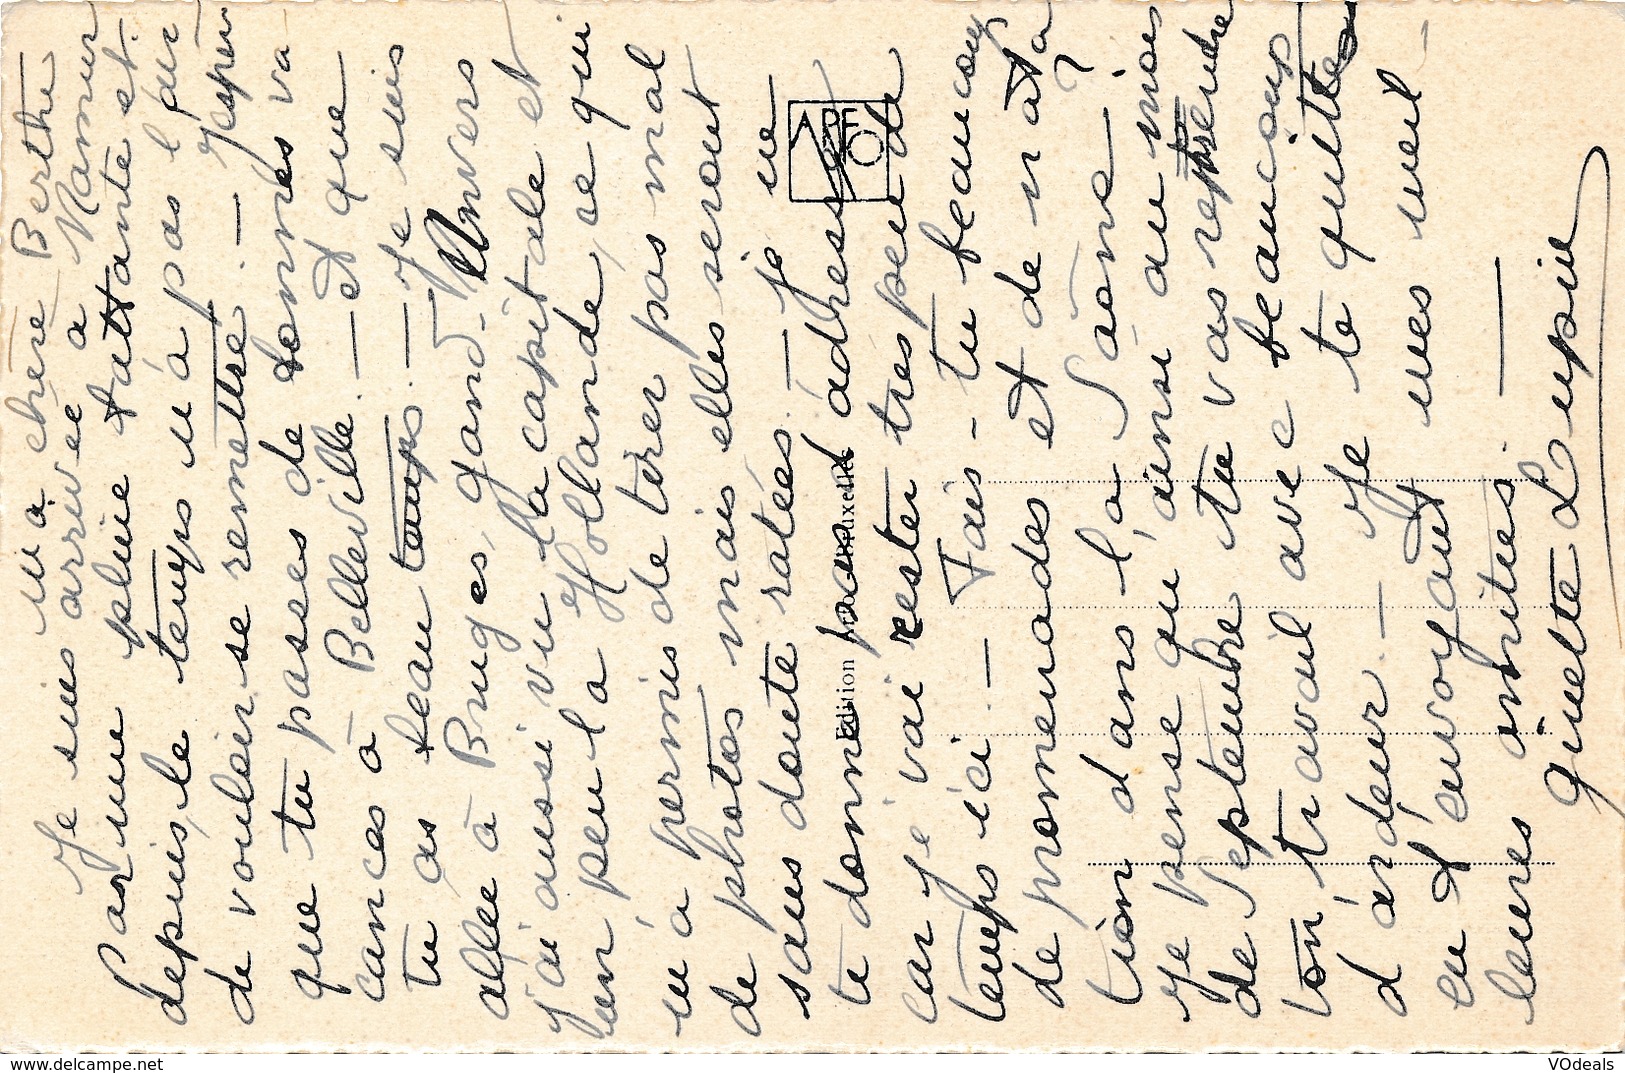 Ma chère Berthe
Je suis arrivée à Namur
Par une pluie battante et
depuis, le temps n'a pas l'air
de vouloir se remettre. — J'espère
que tu passes de bonnes va
cances à Belleville. — et que
tu as beau temps. — Je suis
allée à Bruges, Gand. Anvers
j'ai aussi vu la capitale et
un peu la Hollande, ce qui
m'a permis de tirer pas mal
de photos mais elles seront
sans doute ratées. — je ne
te donne pas d'adresse
car je vai rester très peu de
temps ici. — Fais-tu beaucoup
de promenades et de nata
tion dans la Saône — ?
Je pense qu'ainsi au mois
de Septembre tu vas reprendre
ton travail avec beaucoup
d'ardeur. — Je te quitte
en t'envoyant mes meil-
leures amitiés. —
Ginette Lupin
Edition
ARFO
VOdeals
© delcampe.net